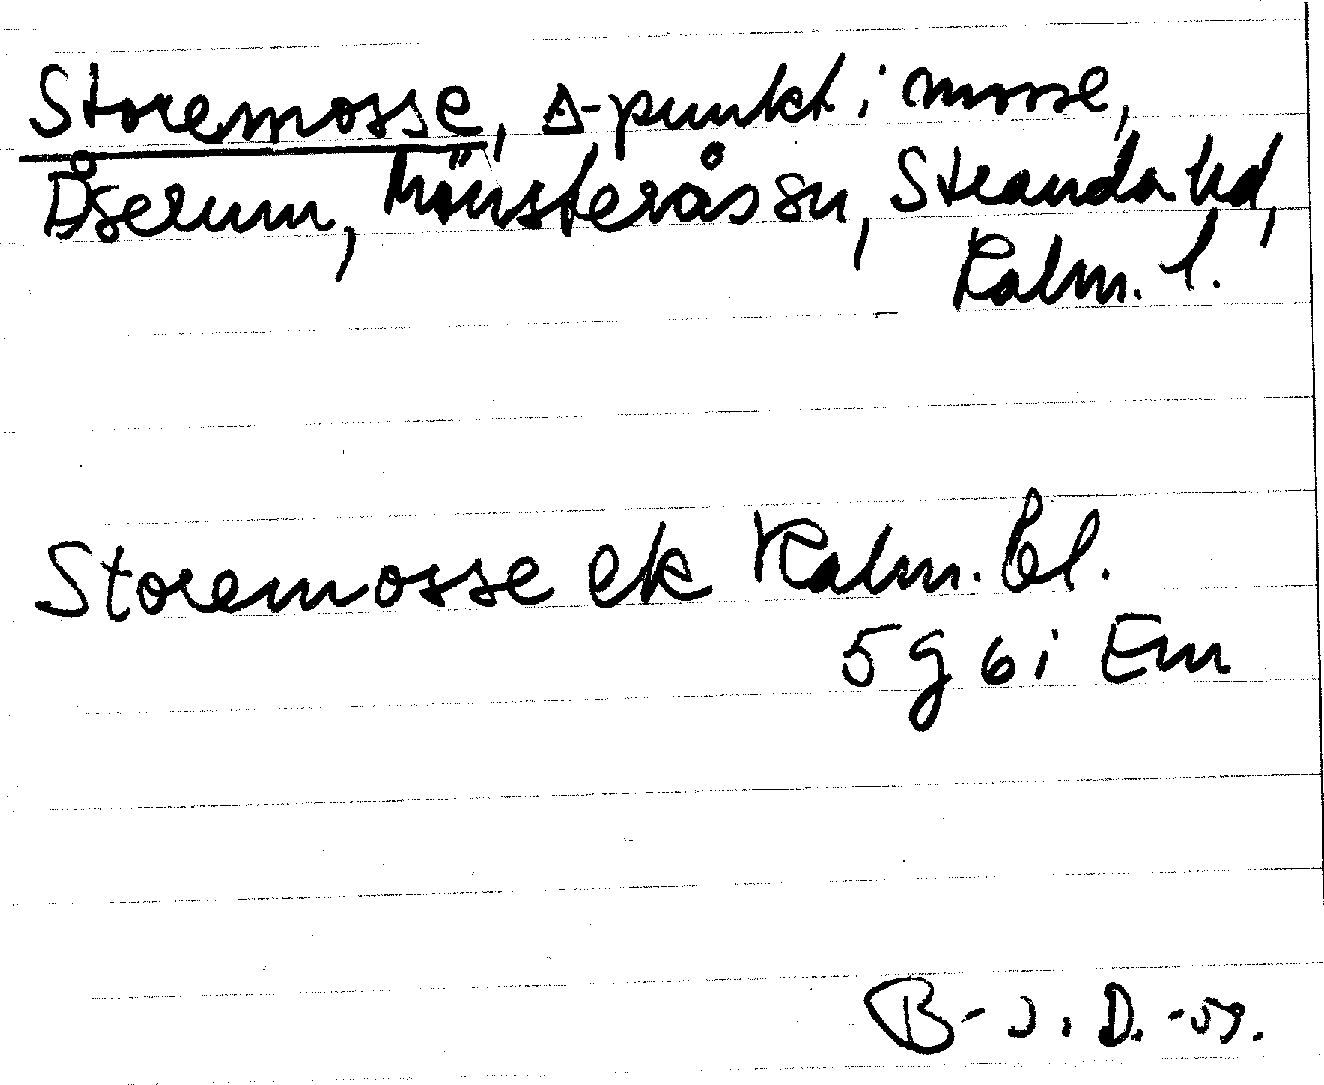 Storemosse, Δ-punkt i mosse,
Åserum, Mönsterås sn, Stranda hd,
Kalm. l.
Storemosse ek Kalm. bl.
5 g 6 i Em
B-J. D. -59.